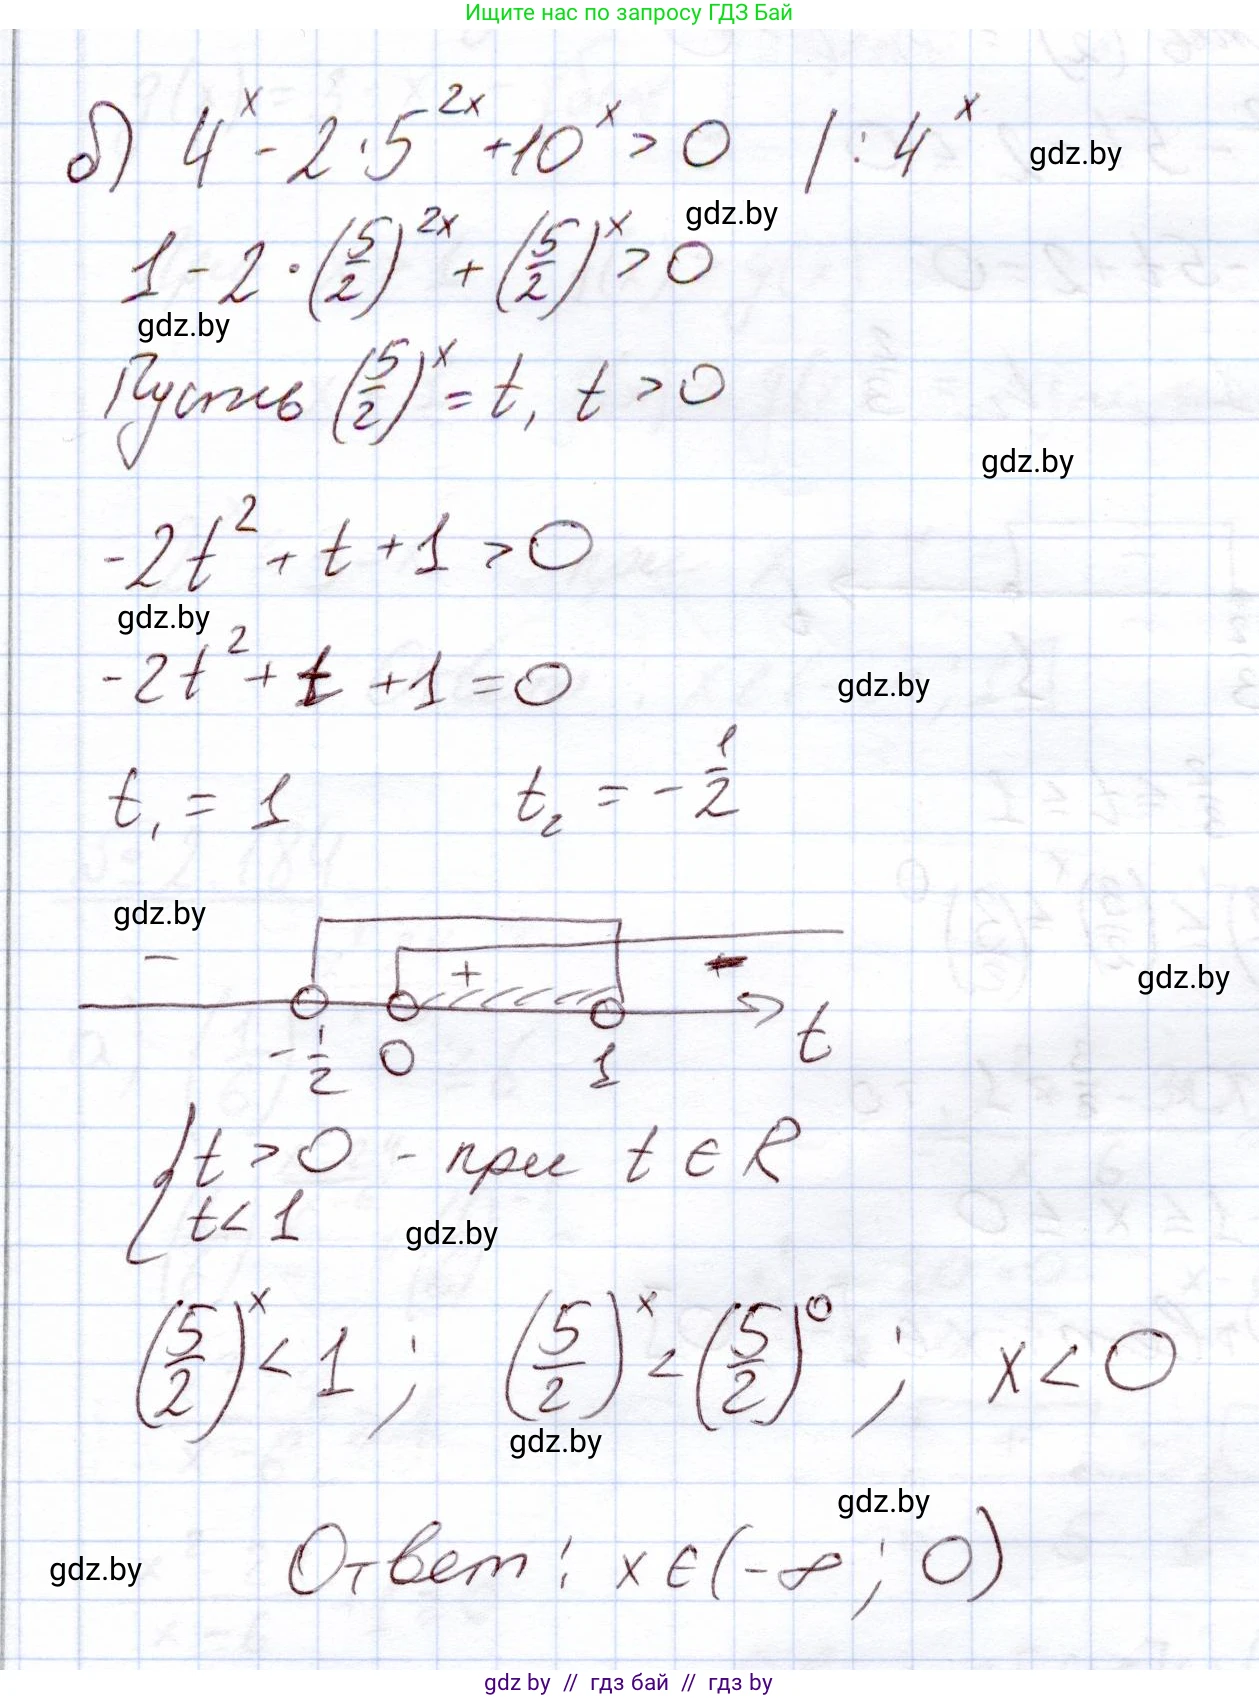 Ищите нас по запросу ГДЗ Бай
б) 4^x - 2·5^{2x} + 10^x > 0 | : 4^x
gdz.by
gdz.by
1 - 2·(5/2)^{2x} + (5/2)^x > 0
gdz.by
Пусть (5/2)^x = t, t > 0
gdz.by
-2t² + t + 1 > 0
gdz.by
-2t² + t + 1 = 0
gdz.by
t₁ = 1 t₂ = -1/2
gdz.by
- + -
gdz.by
-1/2 0 1 t
{ t > 0 - при t ∈ R
t < 1
gdz.by
(5/2)^x < 1 ; (5/2)^x < (5/2)^0 ; x < 0
gdz.by
gdz.by
Ответ: x ∈ (-∞ ; 0)
gdz.by
gdz by // гдз бай // гдз by